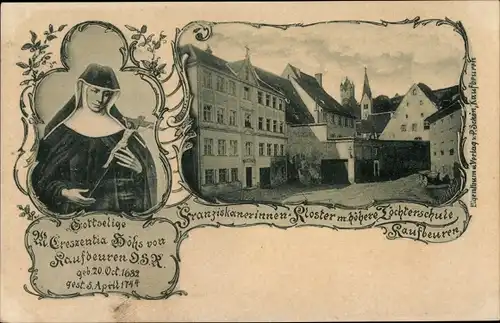 Gottselige
M. Creszentia Höhs von
Kaufbeuren O.S.F.
geb. 20. Oct. 1682
gest. 5. April 1744
Franziskanerinnen-Kloster m. höhere Töchterschule
Kaufbeuren
Eigenthum u. Verlag v. Kaufbeuren